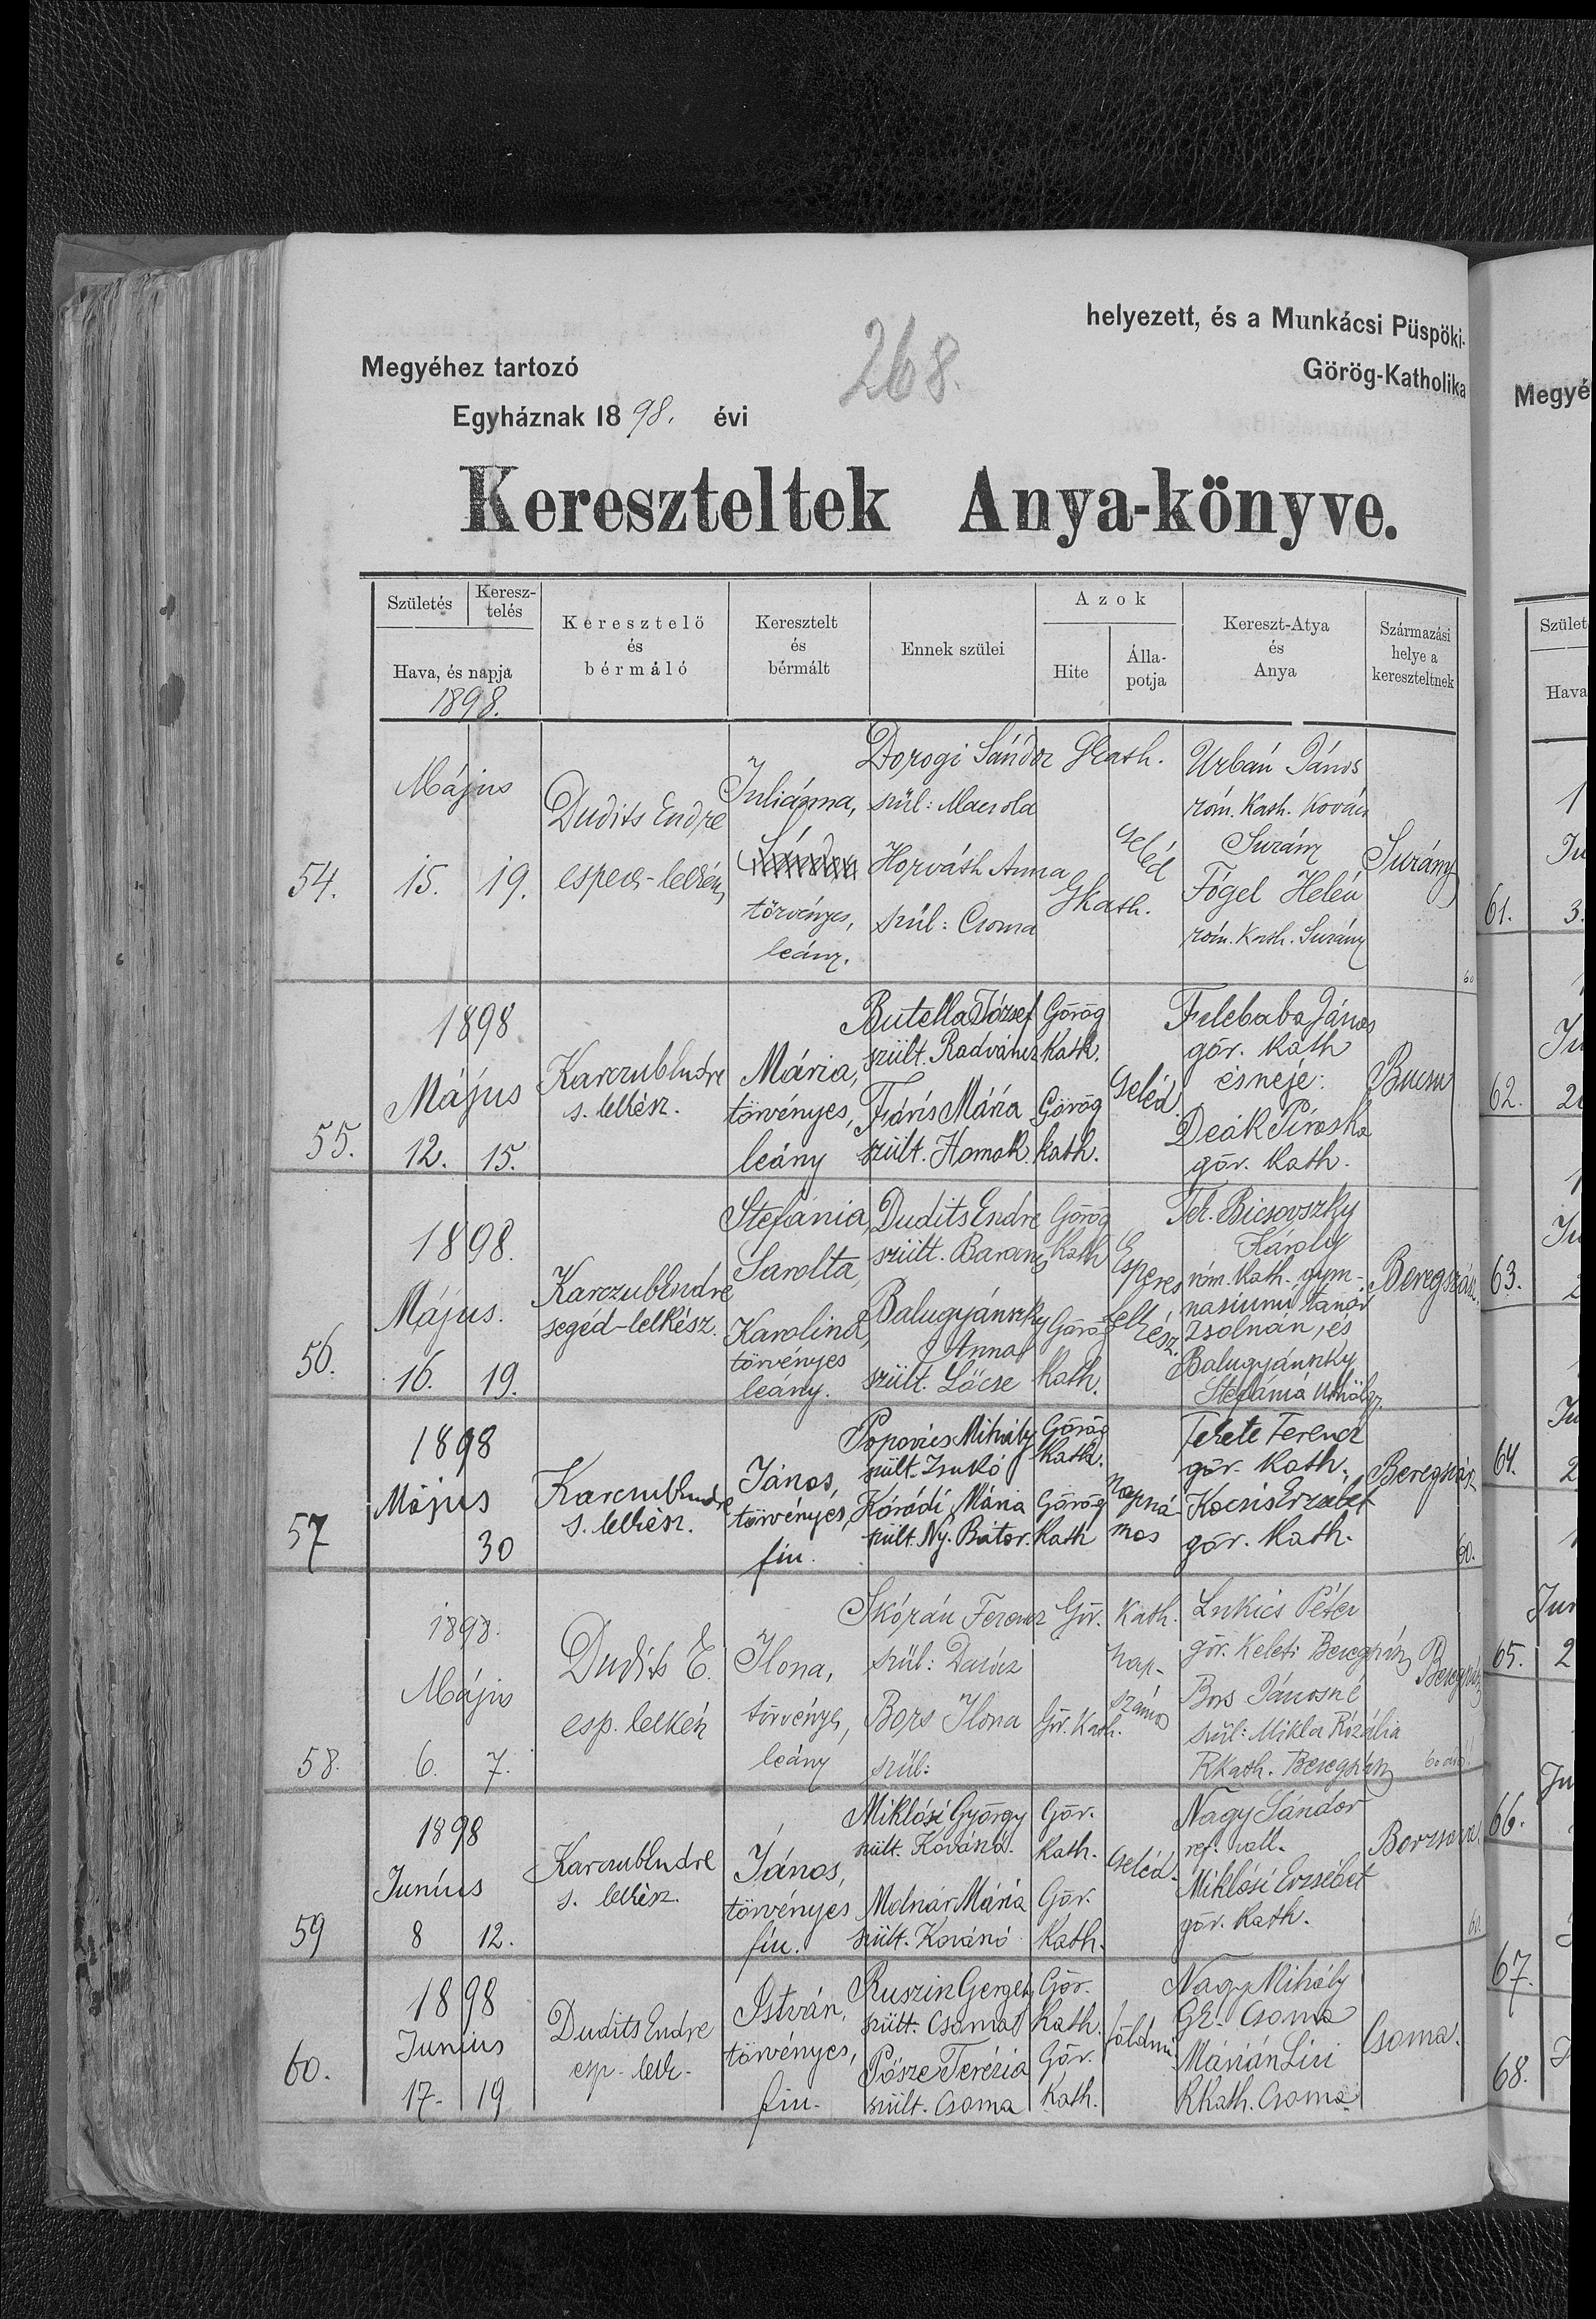 helyezett, és a Munkácsi Püspöki-
268.
Megyéhez tartozó
Görög-Katholika
Egyháznak 1898. évi
Kereszteltek Anya-könyve.
Születés
Keresz-
telés
Hava, és napja
1898.
Keresztelő
és
bérmáló
Keresztelt
és
bérmált
Ennek szülei
Azok
Hite
Álla-
potja
Kereszt-Atya
és
Anya
Származási
helye a
kereszteltnek
54.
Május
15. 19.
Dudits Endre
esperes-lelkész
Juliánna,
törvényes,
leány.
Dorogi Sándor
szül: Macsola
Horváth Anna
szül: Csoma
Gkath.
Gkath.
cseléd
Urbán János
róm. Kath. Kovács
Surány
Fógel Helén
róm. Kath. Surány
Surány
60
55.
1898
Május
12. 15.
Karczub Endre
s. lelkész.
Mária,
törvényes,
leány
Butella József
szült. Radváncz
Fáris Mária
szült. Homok.
Görög
Kath.
Görög
kath.
cseléd.
Felebaba János
gör. kath
és neje:
Deák Piroska
gör. kath.
Bucsu
56.
1898.
Május.
16. 19.
Karczub Endre
segéd-lelkész.
Stefánia,
Sarolta,
Karolina,
törvényes
leány.
Dudits Endre
szült. Baranya
Balugyánszky
Anna
szült. Lőcse
Görög
Kath
Görög
Kath.
Esperes
lelkész.
Tek. Bicsovszky
Károly
róm. kath. gym-
nasiumi tanár
Zsolnán, és
Balugyánszky
Stefánia
Beregszász.
57
1898
Május
30
Karczub Endre
s. lelkész.
János,
törvényes,
fiu.
Popovics Mihály
szült. Izsukó
Kóródi Mária
szült. Ny. Bátor.
Görög
Kath.
Görög
Kath
napszá
mos
Fekete Ferencz
gör. kath.
Kocsis Erzsébet
gör. kath.
Beregszász
60.
58.
1898.
Május
6. 7.
Dudits E.
esp. lelkész
Ilona,
törvényes,
leány
Skórán Ferencz
szül: Darócz
Bors Ilona
szül:
Gör. Kath.
Gör. Kath.
nap-
számos
Lukics Péter
gör. keleti Beregszász
Bors Jánosné
szül: Mikla Rózália
Rkath. Beregszász
Beregszász
59
1898
Junius
8 12.
Karczub Endre
s. lelkész.
János,
törvényes
fiu.
Miklósi György
szült. Kovánó.
Molnár Mária
szült. Kovánó
Gör.
kath.
Gör.
kath.
cseléd.
Nagy Sándor
ref. vall.
Miklósi Erzsébet
gör. kath.
Borzsova.
60.
60.
1898
Junius
17. 19
Dudits Endre
esp. lelk.
István,
törvényes,
fiu.
Ruszin Gergely
szült. Csoma
Pősze Terézia
szült. Csoma
Gör.
Kath.
Gör.
Kath.
földmi
Nagy Mihály
Gk. Csoma
Márián Lizi
RKath. Csoma
Csoma.
Megyé
Születé
Hava
61.
62.
63.
64.
65.
66.
67.
68.